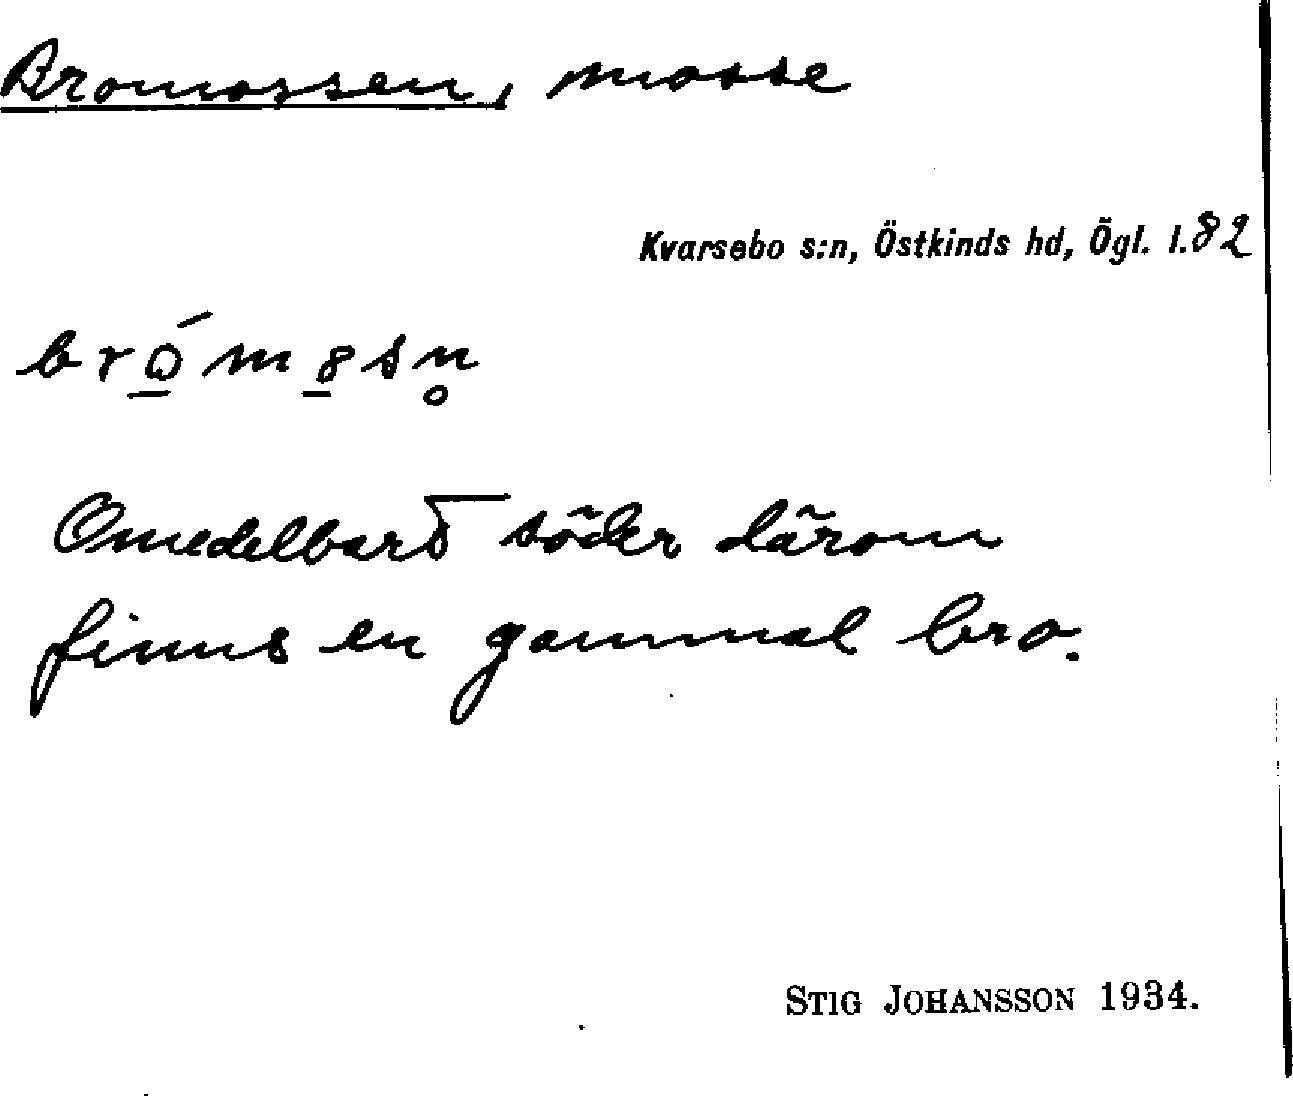 Bromossen, mosse
Kvarsebo s:n, Östkinds hd, Ögl. l. 82
Omedelbart söder därom
finns en gammal bro.
STIG JOHANSSON 1934.